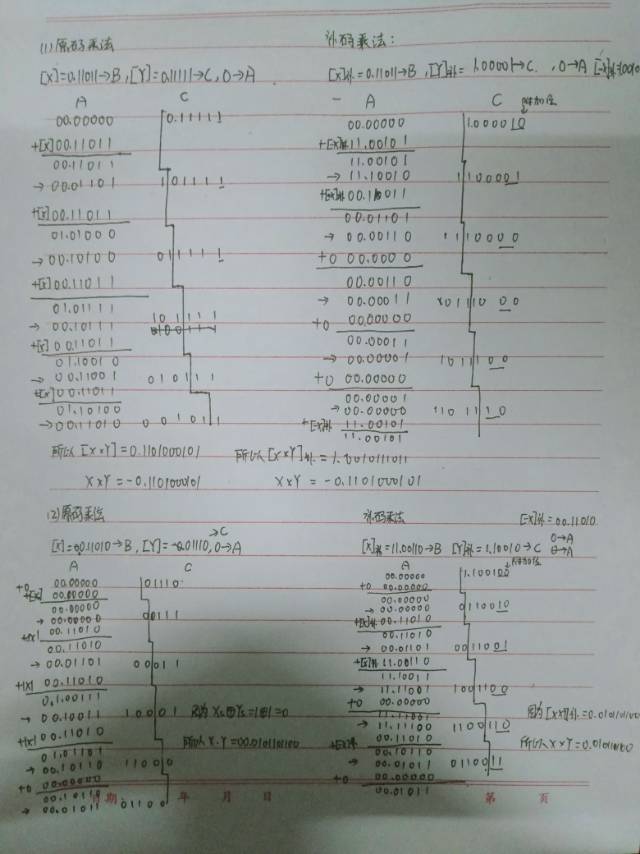 (1)原码乘法
[X]=0.11011→B,[Y]=0.11111→C,0→A
A C
00.00000 0.11111
+[X]00.11011
00.11011
→00.01101 101111
+[X]00.11011
01.01000
→00.10100 011111
+[X]00.11011
01.01111
→00.10111 101111
+[X]00.11011
01.10010
→00.11001 010111
+[X]00.11011
01.10100
→00.11010 001011
所以[X×Y]=0.1101000101
X×Y=-0.1101000101
补码乘法:
[X]补=0.11011→B,[Y]补=1.00001→C,0→A
附加位
A C
00.00000 1.000010
+[-X]补11.00101
11.00101
→11.10010 1100001
+[X]补00.11011
00.01101
→00.00110 1110000
+0 00.00000
00.00110
→00.00011 0111000
+0 00.00000
00.00011
→00.00001 1011100
+0 00.00000
00.00001
→00.00000 1101110
+[-X]补11.00101
11.00101
所以[X×Y]补=1.0010111011
X×Y=-0.1101000101
(2)原码乘法
→C
[X]=00.11010→B,[Y]=-0.01110,0→A
A C
00.00000 01110
+0 00.00000
00.00000
→00.00000 00111
+|X|00.11010
00.11010
→00.01101 00011
+|X|00.11010
01.00111
→00.10011 10001
+|X|00.11010
01.01101
→00.10110 11000
+0 00.00000
00.10110
→00.01011 01100
因为Xs⊕Ys=1⊕1=0
所以X·Y=00.0101101100
补码乘法
[-X]补=00.11010
[X]补=11.00110→B [Y]补=1.10010→C 0→A
附加位
A C
00.00000 1.100100
+0 00.00000
00.00000
→00.00000 0110010
+[-X]补00.11010
00.11010
→00.01101 0011001
+[X]补11.00110
11.10011
→11.11001 1001100
+0 00.00000
11.11001
→11.11100 1100110
00.11010
00.10110
→00.01011 0110011
+0 00.00000
00.01011
因为[X×Y]补=0.0101101100
所以X×Y=0.0101101100
期 年 月 日 第 页